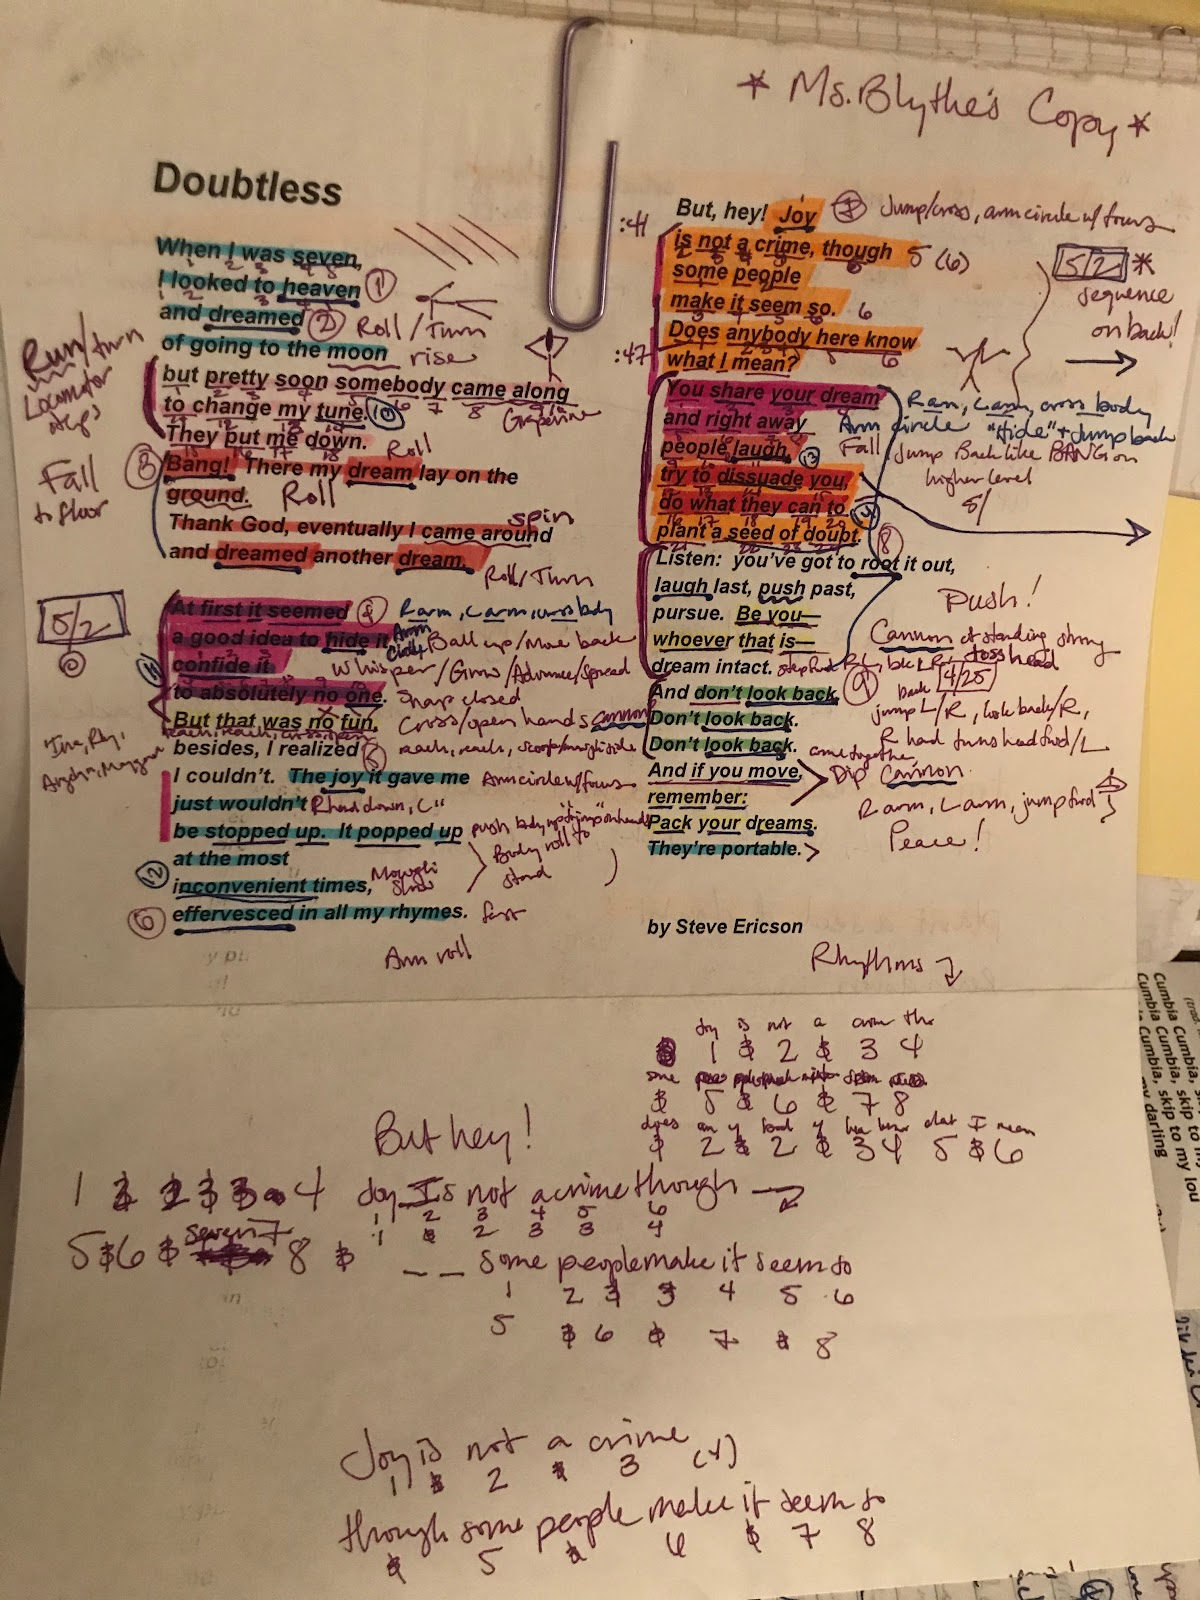 * Ms. Blythe's Copy *
Doubtless
When I was seven,
I looked to heaven ①
and dreamed ② Roll / Turn
of going to the moon rise
Run/turn
Locomotor
steps
but pretty soon somebody came along
to change my tune. Grapevine
They put me down.
Roll
Fall
to floor
③ Bang! There my dream lay on the
ground. Roll
Thank God, eventually I came around
spin
and dreamed another dream.
Roll/Turn
5/2
At first it seemed R arm, L arm, cross body
a good idea to hide it Arm circle Ball up/Move back
confide it Whisper/Grow/Advance/Spread
to absolutely no one. Snap closed
But that was no fun, Cross/open hands cannon
reach, reach, cross, open
besides, I realized reach, reach,
I couldn't. The joy it gave me Arm circle w/focus
just wouldn't R hand down, L "
be stopped up. It popped up push body up "&" jump on hands
Body roll to
stand
at the most
⑫ inconvenient times, Mowgli
⑥ effervesced in all my rhymes. fast
Arm roll
But, hey! Joy ⑦ Jump/cross, arm circle w/ focus
:41
is not a crime, though 5 (6)
some people
make it seem so. 6
Does anybody here know
:47
what I mean?
5/2 *
sequence
on back!
You share your dream R arm, L arm, cross body
and right away Arm circle "Hide" + Jump back
people laugh, ⑬ Fall Jump Back like BANG on
higher level
5/
try to dissuade you,
do what they can to
plant a seed of doubt.
⑧
Listen: you've got to root it out,
laugh last, push past,
Push!
pursue. Be you—
whoever that is— Cannon of standing strong
dream intact. step fwd R L, back R L, toss head
And don't look back. ⑨ back 4/25
Don't look back. jump L/R, look back/R,
Don't look back. R hand turns head fwd/L
come together
And if you move, Dip Cannon
remember: R arm, L arm, jump fwd
Pack your dreams. Peace!
They're portable.
by Steve Ericson
Rhythms
Joy is not a crime tho
1 & 2 & 3 4
some
& 5 & 6 & 7 8
does an y bod y here know what I mean
& 2 & 2 & 3 4 5 & 6
But hey!
1 & 2 & 3 & 4 Joy Is not a crime though
1 2 3 4 5 6
1 & 2 3 3 4
5 & 6 & seven 7 8 & _ _ some people make it seem so
1 2 3 3 4 5 6
5 & 6 & 7 & 8
Joy is not a crime
1 & 2 & 3 (4)
though some people make it seem so
& 5 & 6 & 7 8
Cumbia Cumbia, skip to my lou
my darling